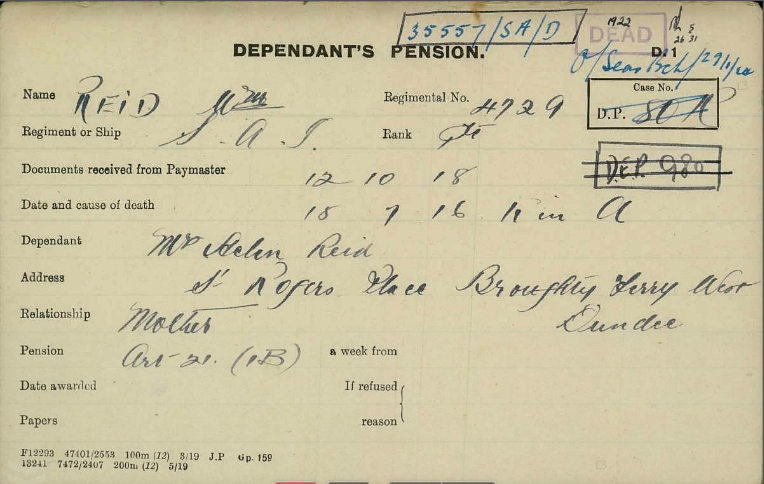 35557/SA/D
1922
DEAD
DEPENDANT'S PENSION.
D. 1
O/Seas Bch/29/1/20
Name REID Wm
Regimental No. 4729
Case No.
D.P. 80A
Regiment or Ship S. A. I.
Rank Pte
D.E.P. 980
Documents received from Paymaster 12 10 18
Date and cause of death 18 7 16 K in A
Dependant Mrs Helen Reid
Address St Rogers Place Broughty Ferry West
Dundee
Relationship Mother
Pension Art 21. (1B) a week from
Date awarded If refused
Papers reason
F12293 47401/2553 100m (12) 3/19 J.P Gp. 159
13241 7472/2407 200m (12) 5/19